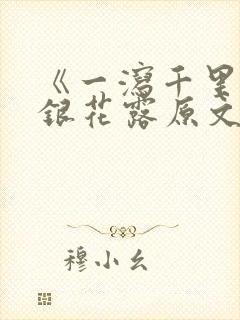 《一泻千里
银花露原文
穆小幺